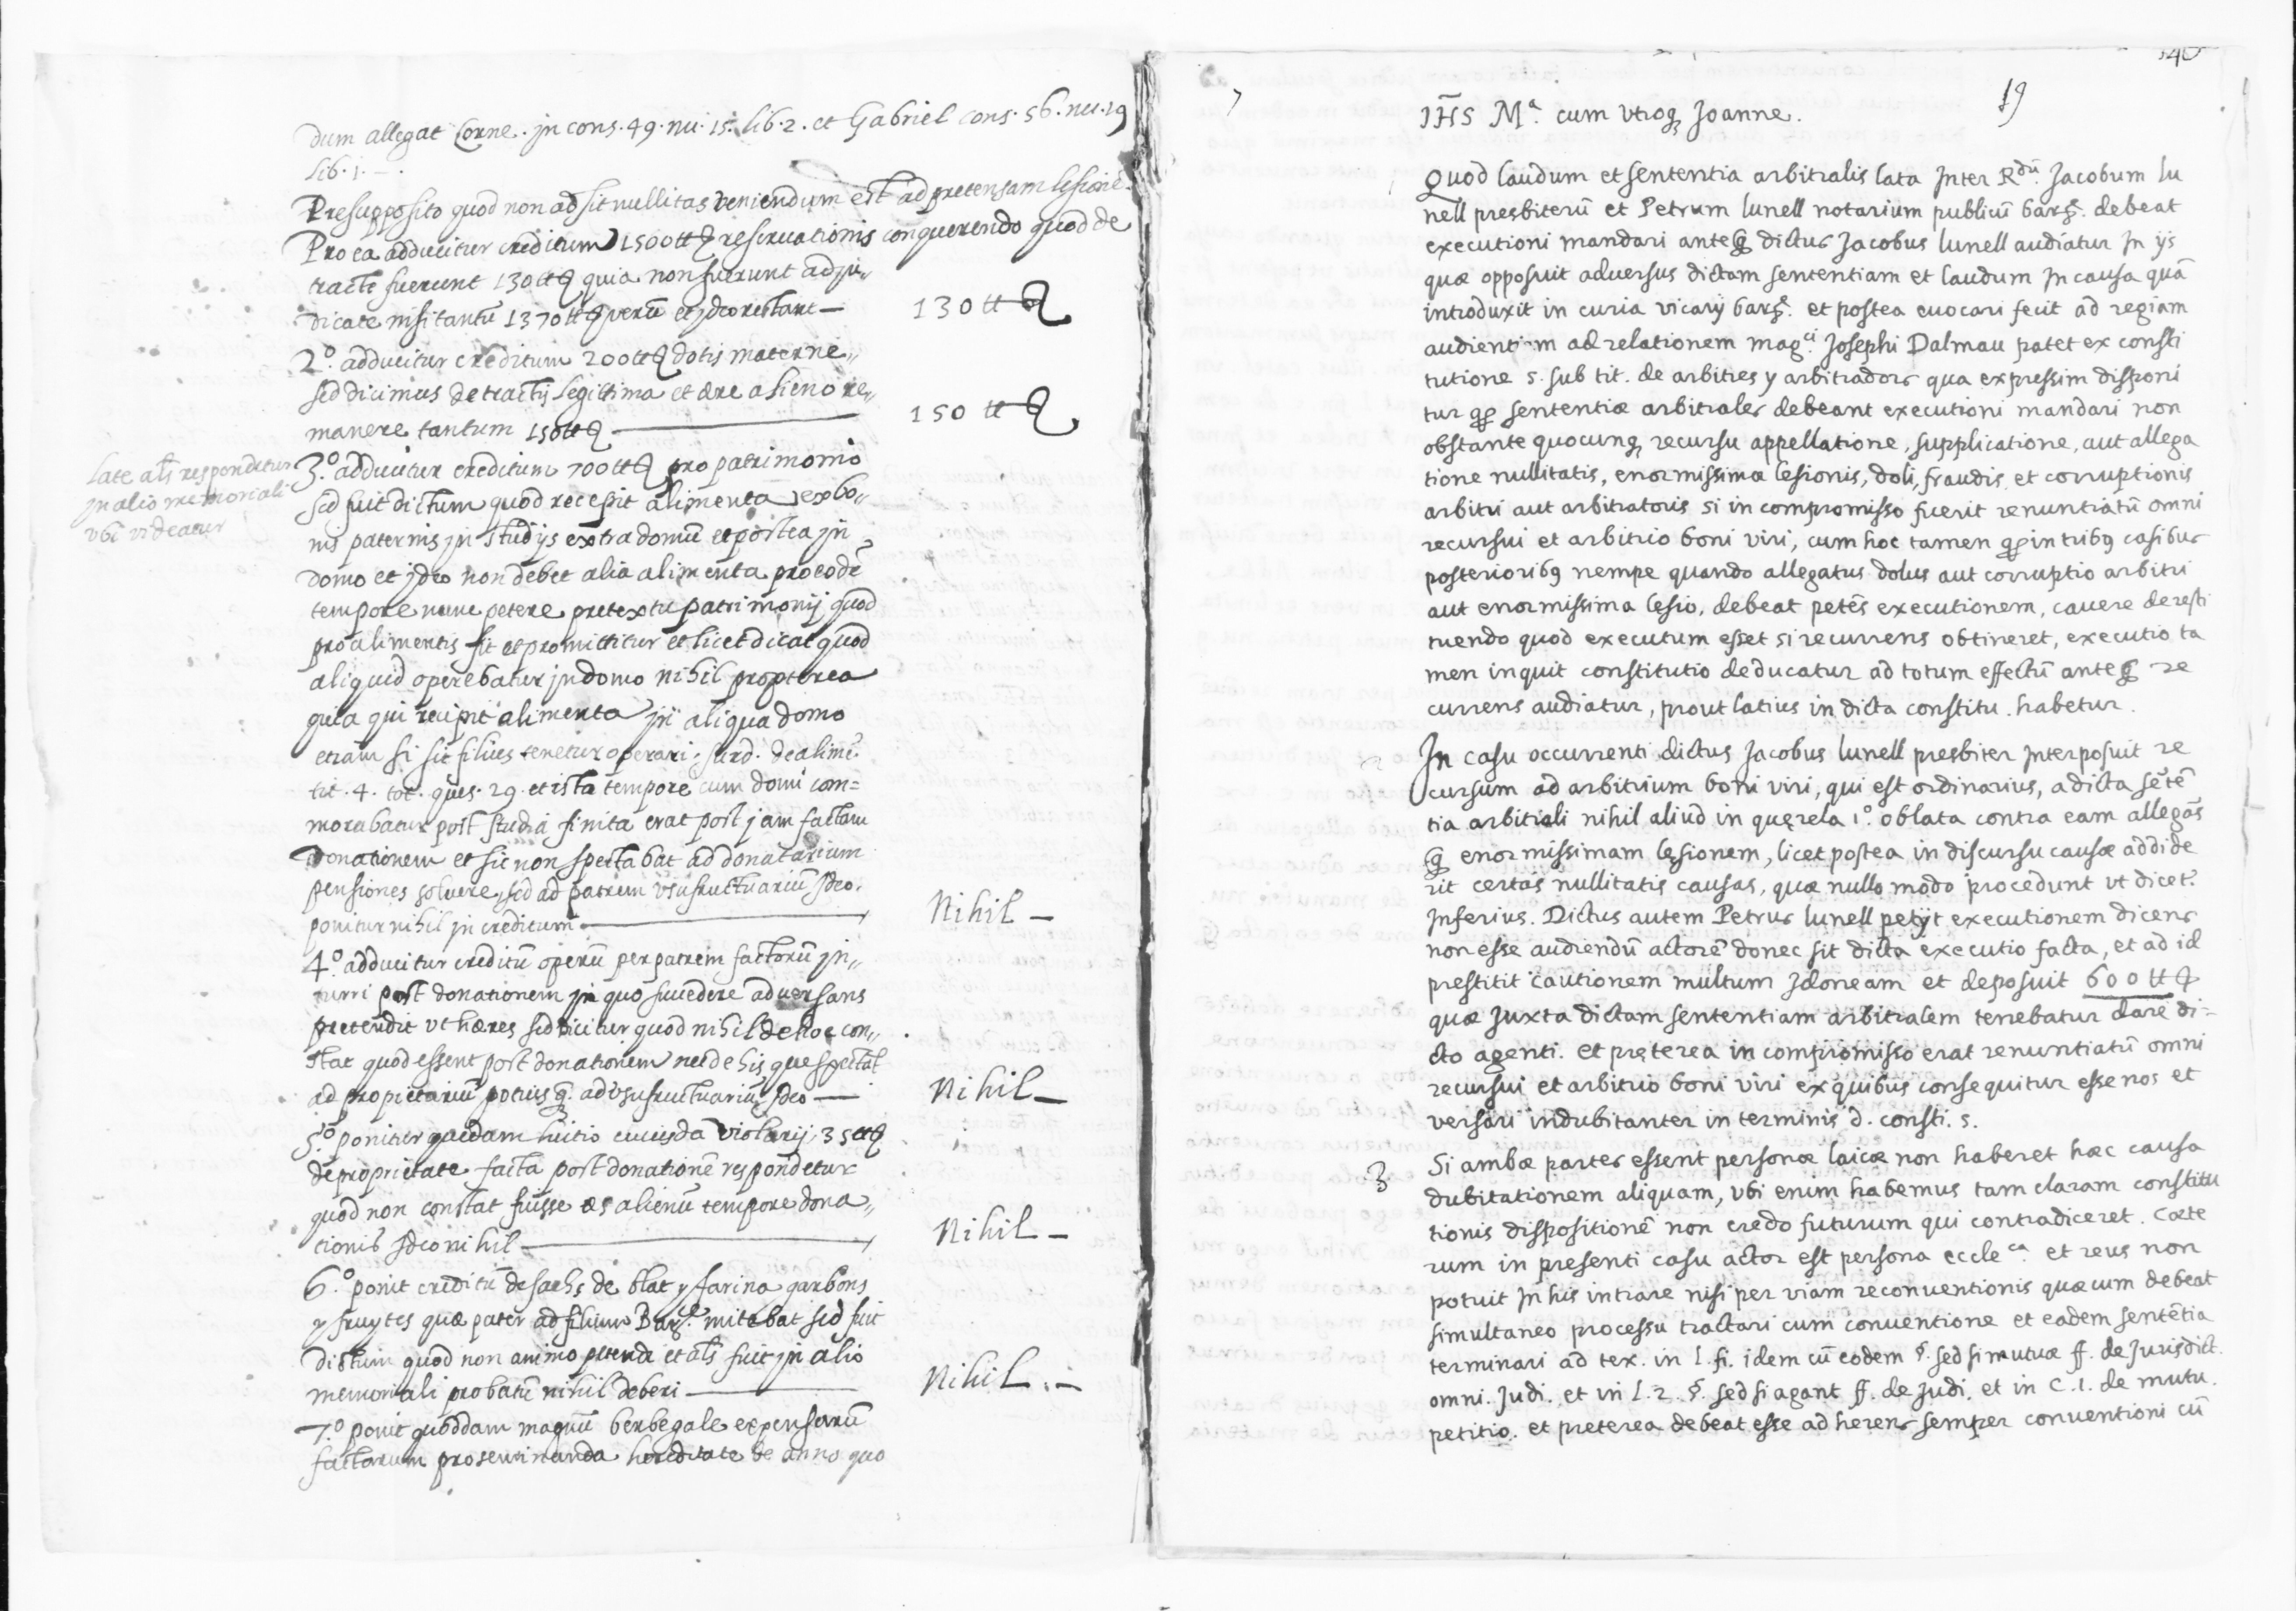 dum allegat Corne. in cons. 49. nu. 15. lib. 2. et Gabriel cons. 56. nu. 19
lib. 1. —.
Presupposito quod non adsit nullitas veniendum est ad pretensam lesionē.
Pro ea adducitur creditum 1500 ₶ reservationis conquerendo quod de
tracte fuerunt 130 ₶ quia non fuerunt adju„
dicate nisi tantū 1370 ₶ verū et ideo restant — 130 ₶
2º. adducitur creditum 200 ₶ dotis materne„
sed dicimus detractis legittima et ære alieno re„
manere tantum 150 ₶ — 150 ₶
late als respondetur
in alio memoriali
ubi videatur
3.º adducitur creditum 700 ₶ pro patrimonio
sed fuit dictum quod recepit alimenta ex bo„
nis paternis in studijs extra domū et postea in
domo et ideo non debet alia alimenta pro eodē
tempore nunc petere pretextu patrimonij quod
pro alimentis fit et promittitur et licet dicat quod
aliquid operebatur in domo nihil propterea
quia qui recipit alimenta in aliqua domo
etiam si sit filius tenetur operari. surd. de alimē.
tit. 4. tot. ques. 29. et ista tempore cum domi com=
morabatur post studia finita erat post jam factam
Donationem et sic non spectabat ad donatarium
pensiones solvere, sed ad patrem usufructuariū ideo.
ponitur nihil in creditum — Nihil —
4.º adducitur creditū operū per patrem factorū in„
turri post donationem in quo succedere adversans
pretendit ut hæres sed dicitur quod nihil de hoc con„
stat quod essent post donationem nec de his que spectāt
ad propietariū potius q̃. ad usufructuariū ideo — Nihil —
5.º ponitur quedam luitio cuiusdā violarij. 35 ₶
de proprietate facta post donationē respondetur
quod non constat fuisse æs alienū tempore dona„
tionis ideo nihil — Nihil —
6.º ponit creditū de sachs de blat y farina garbons
y fruytes quæ pater ad filium Barᶜᵉ. mitebat sed fuit
dictum quod non animo petendi et als fuit in alio
memoriali probatū nihil deberi — Nihil. —
7.º ponit quoddam magnū berbegale expensarū
factarum pro seminanda hereditate de anno quo
40
19
IH̄S Mᵃ. cum utroq₃ Joanne.
Quod laudum et sententia arbitralis lata Inter Rᵈū. Jacobum lu
nell presbiterū et Petrum lunell notarium publicū barᶜᵉ. debeat
executioni mandari anteq̃ dictus Jacobus lunell audiatur In ijs
quæ opposuit adversus dictam sententiam et laudum In causa quā
introduxit in curia vicarij barᶜᵉ. et postea evocari fecit ad regiam
audientiam ad relationem magᶜⁱ. Josephi Dalmau patet ex consti
tutione 5. sub tit. de arbitres y arbitradors qua expressim disponi
tur q̃ sententiæ arbitrales debeant executioni mandari non
obstante quocunq₃ recursu appellatione, supplicatione, aut allega
tione nullitatis, enormissima lesionis, doli, fraudis, et corruptionis
arbitri aut arbitratoris si in compromisso fuerit renuntiatū omni
recursui et arbitrio boni viri, cum hoc tamen q̃ in tribꝰ casibus
posterioribꝰ nempe quando allegatus dolus aut corruptio arbitri
aut enormissima lesio, debeat petēs executionem, cavere de resti
tuendo quod executum esset si recurrens obtineret, executio ta
men inquit constitutio deducatur ad totum effectū anteq̃ re
currens audiatur, prout latius in dicta constitu. habetur.
In casu occurrenti dictus Jacobus lunell presbiter Interposuit re
cursum ad arbitrium boni viri, qui est ordinarius, a dicta sētē
tia arbitrali nihil aliud in querela 1º. oblata contra eam allegās
q̃ enormissimam lesionem, licet postea in discursu causæ addide
rit certas nullitatis causas, quæ nullo modo procedunt ut dicet.ʳ
Inferius. Dictus autem Petrus lunell petijt executionem dicens
non esse audiendū actorē donec sit dicta executio facta, et ad id
prestitit cautionem multum Idoneam et deposuit 600 ₶
quæ Juxta dictam sententiam arbitralem tenebatur dare di=
cto agenti. et preterea in compromisso erat renuntiatū omni
recursui et arbitrio boni viri ex quibus consequitur esse nos et
versari indubitanter in terminis d. consti. 5.
3 Si ambæ partes essent personæ laicæ non haberet hæc causa
dubitationem aliquam, ubi enim habemus tam claram constitu
tionis dispositionē non credo futurum qui contradiceret. Cæte
rum in presenti casu actor est persona eccleᶜᵃ. et reus non
potuit In his intrare nisi per viam reconventionis quæ cum debeat
simultaneo processu tractari cum conventione et eadem sentētia
terminari ad tex. in l. fi. idem cū eodem §. sed si mutuæ ff. de Jurisdict.
omni. Judi. et in l. 2. §. sed si agant ff. de Judi. et in c. 1. de mutu.
petitio. et preterea debeat esse ad herens semper conventioni cū